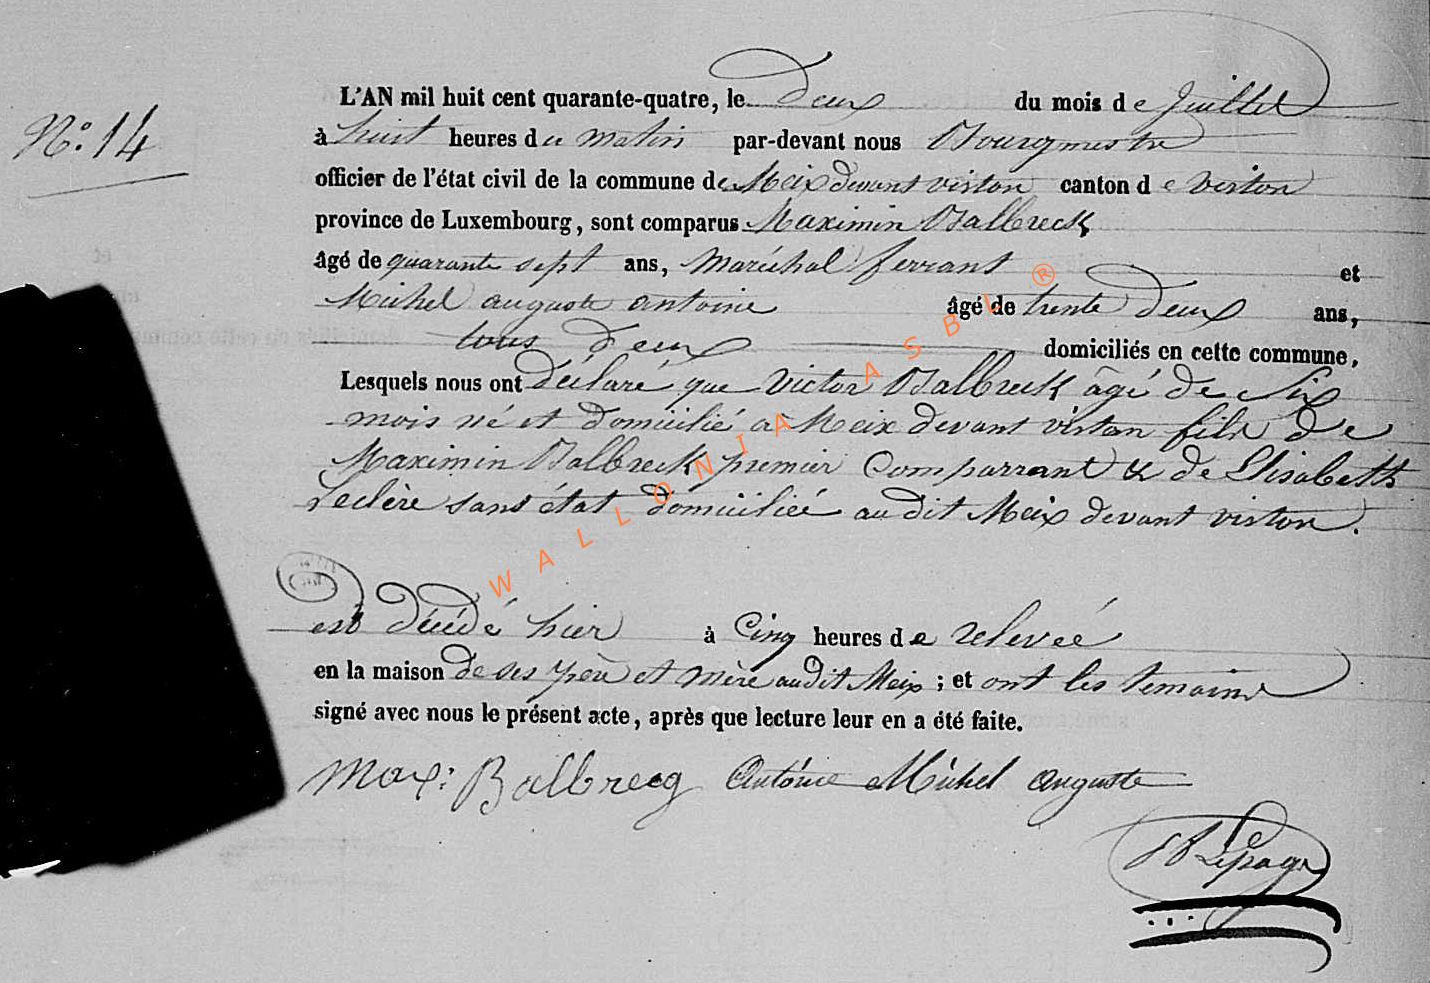 N°: 14
L'AN mil huit cent quarante-quatre, le deux du mois de Juillet
à huit heures du matin par-devant nous Bourgmestre
officier de l'état civil de la commune de Meix devant virton canton de virton
province de Luxembourg, sont comparus Maximin Balbreck
âgé de quarante sept ans, Maréchal ferrant et
Michel auguste antoine âgé de trente deux ans,
tous deux domiciliés en cette commune,
Lesquels nous ont déclaré que victor Balbreck âgé de Six
mois né et domicilié à Meix devant virton fils de
Maximin Balbreck premier Comparrant & de Elisabeth
Leclère sans état domiciliée audit Meix devant virton.
est décédé hier à Cinq heures de relevée
en la maison de ses père et mère audit Meix ; et ont les temoins
signé avec nous le présent acte, après que lecture leur en a été faite.
Max: Balbrecq Antoine Michel auguste
Lepage
WALLONIA ASBL ®